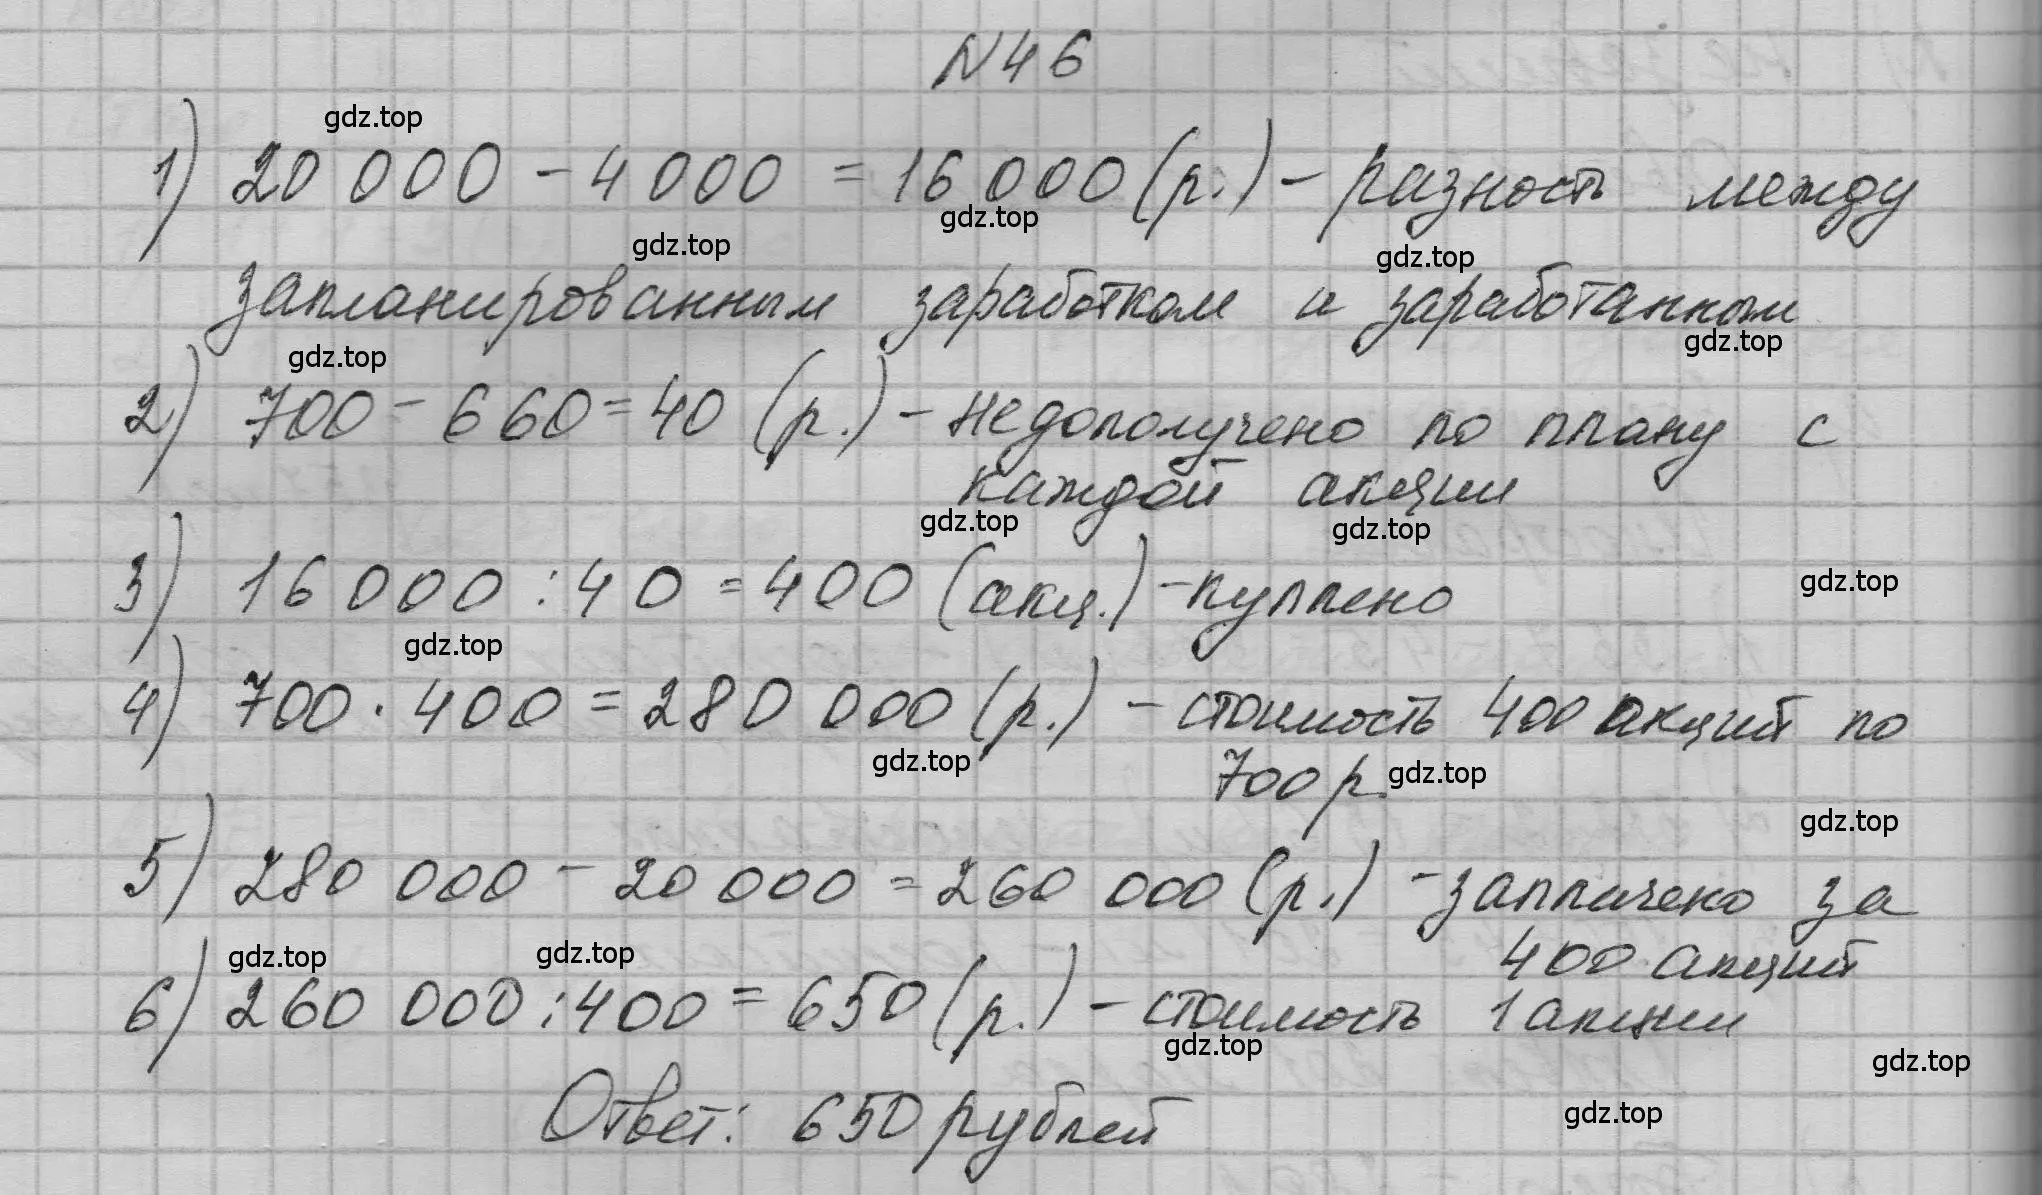 N46
gdz.top
1) 20 000 - 4 000 = 16 000 (р.) - разность между
gdz.top gdz.top gdz.top
запланированным заработком и заработанным
gdz.top gdz.top
2) 700 - 660 = 40 (р.) - недополучено по плану с
каждой акции
gdz.top gdz.top
3) 16 000 : 40 = 400 (акц.) - куплено
gdz.top
gdz.top
4) 700 · 400 = 280 000 (р.) - стоимость 400 акций по
700 р.
gdz.top gdz.top
gdz.top
5) 280 000 - 20 000 = 260 000 (р.) - заплачено за
400 акций
gdz.top gdz.top
6) 260 000 : 400 = 650 (р.) - стоимость 1 акции
gdz.top gdz.top
Ответ: 650 рублей
gdz.top